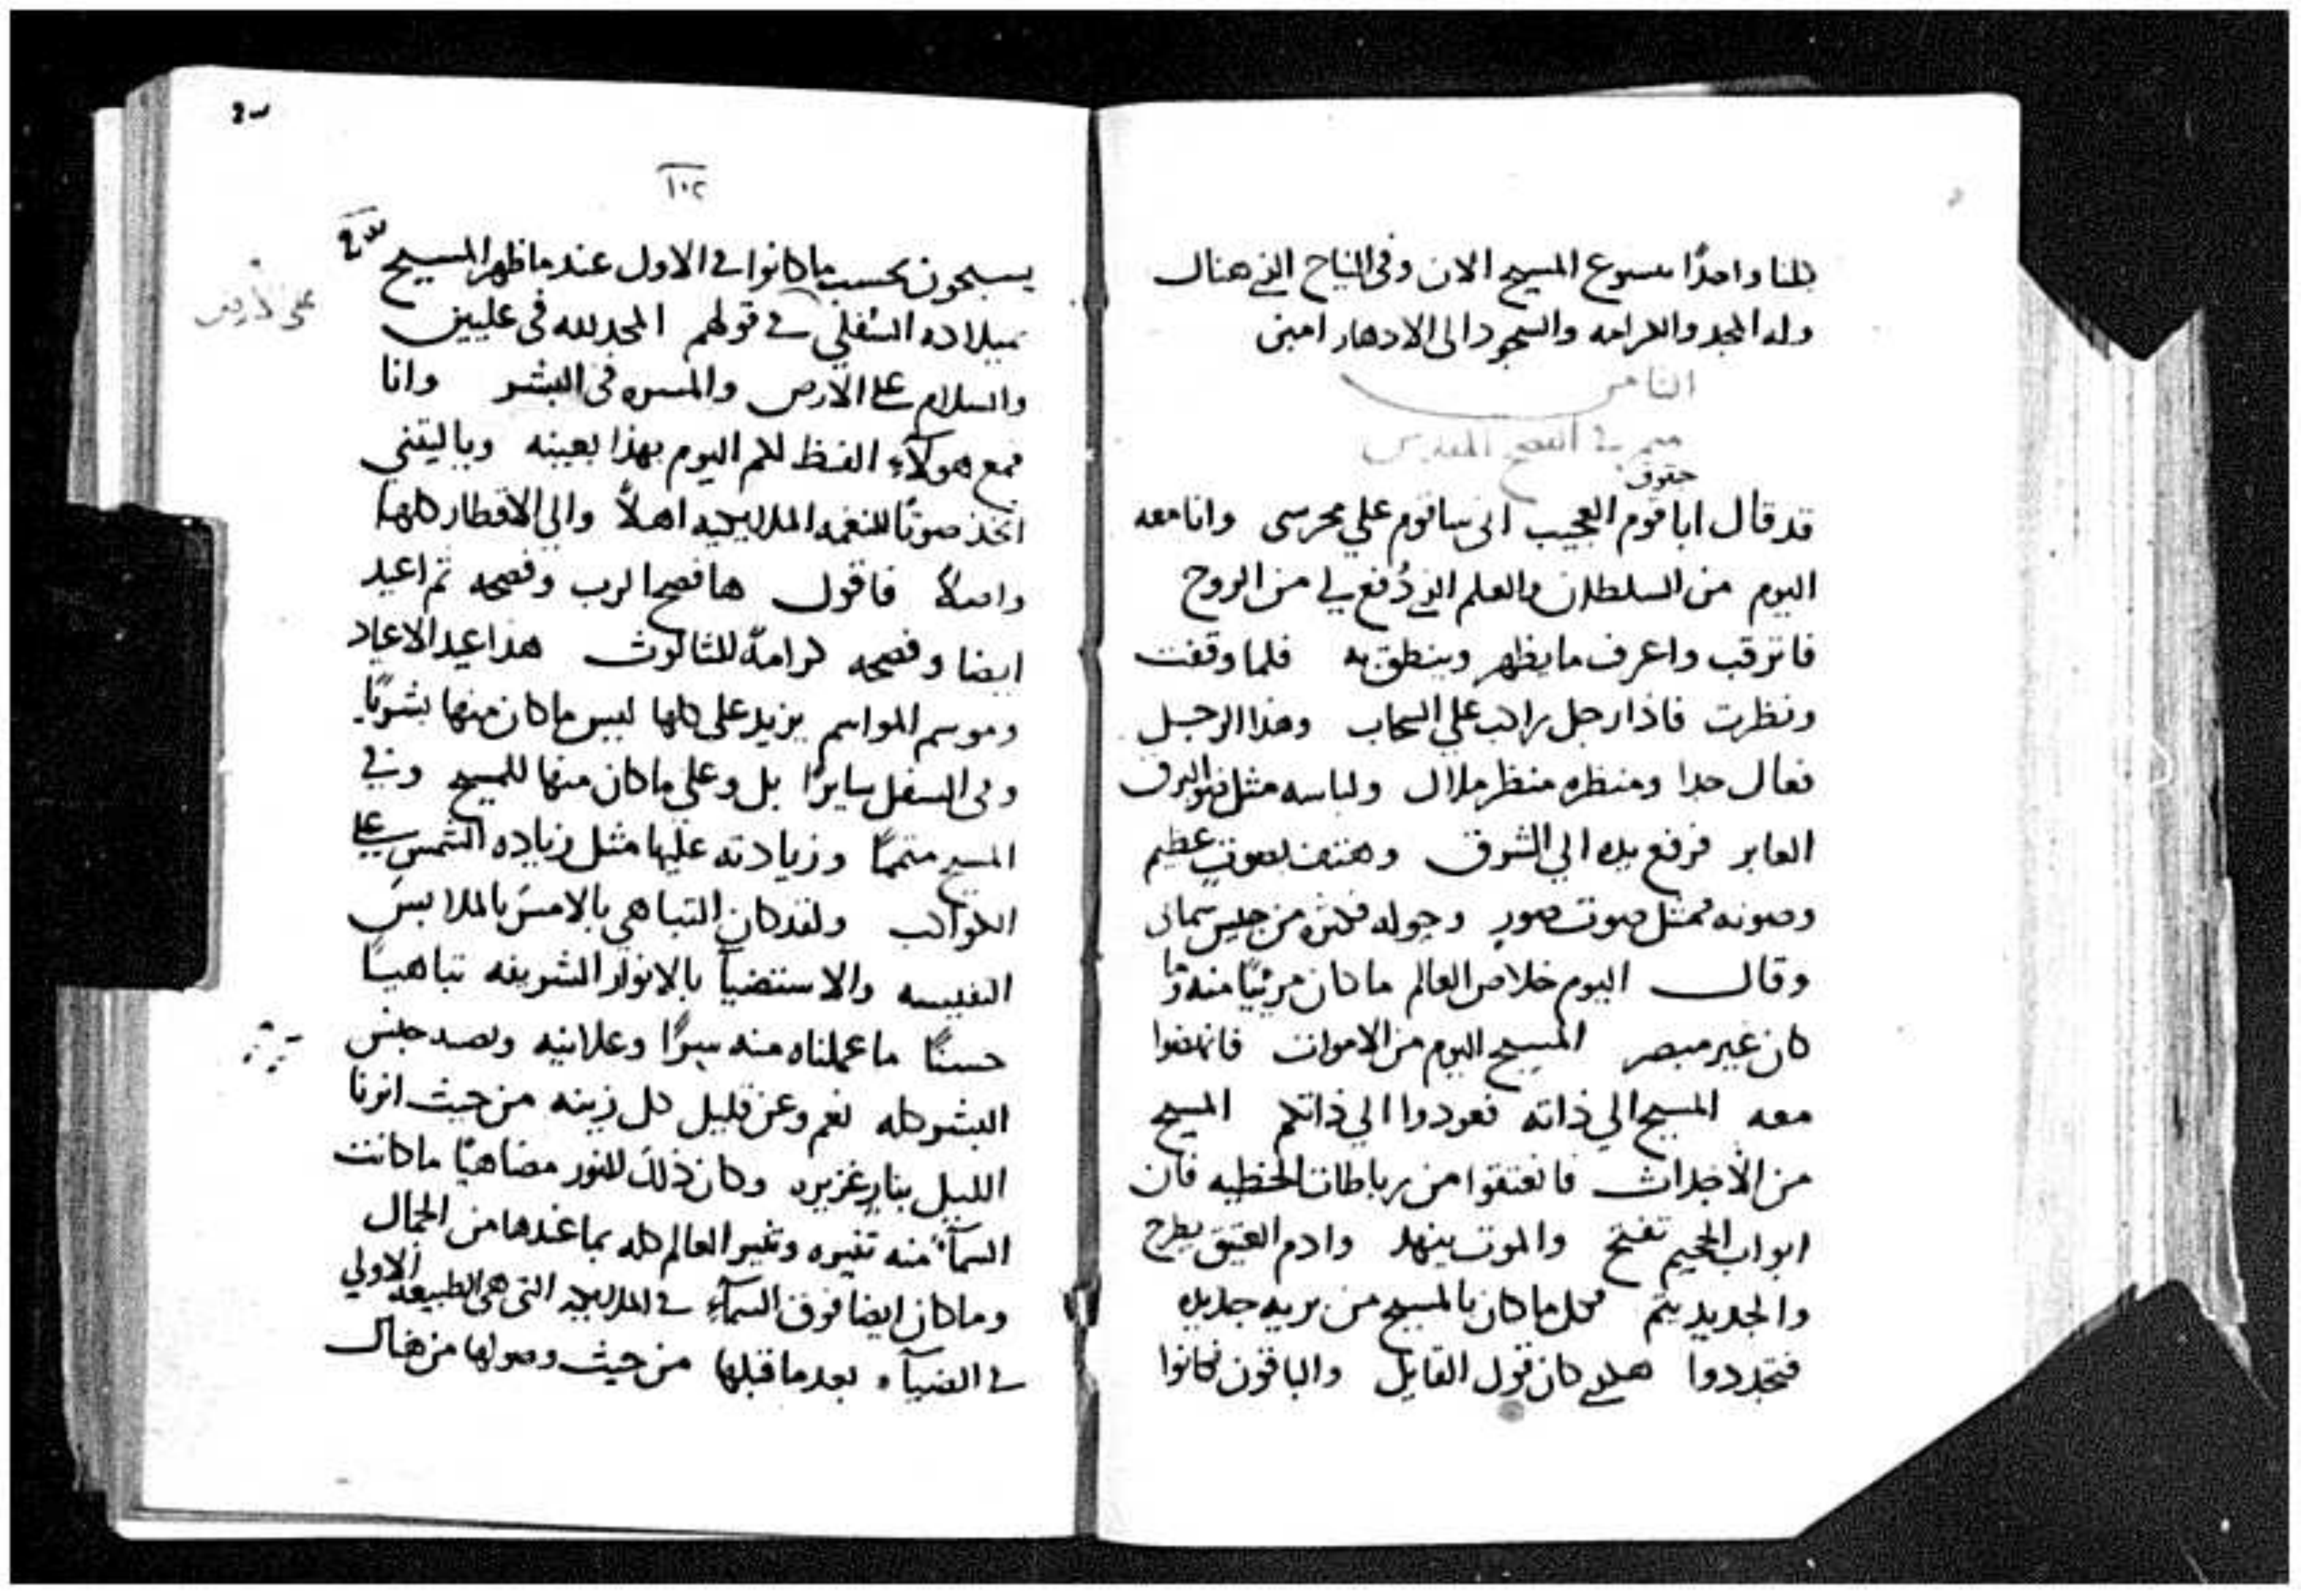 كلنا واحدًا بيسوع المسيح الان وفى النياح الذي هناك
وله المجد والكرامه والسجود الى الادهار امين
الثامن
ميمر في الفصح المقدس
حقوق
قد قال اباقوم العجيب انى ساقوم علي محرسى وانا معه
اليوم من السلطان والعلم الذي دُفع لي من الروح
فاترقب واعرف ما يظهر وينطق به فلما وقفت
ونظرت فاذا رجل راكب علي السحاب وهذا الرجل
فعال جدا ومنظره منظر ملاك ولباسه مثل ضو البرق
العابر فرفع يده الي الشرق وهتف بصوتٍ عظيم
وصوته كمثل صوت صور وحوله كثره من جيش سماى
وقال اليوم خلاص العالم ما كان مرئيًا منه وما
كان غير مبصر المسيح اليوم من الاموات فانهضوا
معه المسيح الي ذاته فعودوا الي ذاتكم المسيح
من الأجداث فانعتقوا من رباطات الخطيه فان
ابواب الجحيم تفتح والموت ينهد وادم العتيق يطرح
والجديد يتم فكل ما كان بالمسيح من بريه جديده
فتجددوا هكذي كان قول القايل والباقون فكانوا
١٠٢
يسبحون بحسب ما كانوا في الاول عند ما ظهر المسيح
بميلاده السُفلي في قولهم المجد لله فى عليين
والسلام على الارض والمسره فى البشر وانا
فمع هولآءِ الفظ لكم اليوم بهذا بعينه وياليتني
اتخذ صوتًا للنغمه الملاييكيه اهلاً والي الاقطار كلها
واصلاً فاقول ها فصح الرب وفصحه ثم اعيد
ايضا وفصحه كرامةً للثالوث هذا عيد الاعياد
وموسم المواسم يزيد على كلها ليس ما كان منها بشريًا
وفى السفل سايرًا بل وعلي ما كان منها للمسيح وفي
المسيح متممًا وزيادته عليها مثل زياده الشمس على
الكواكب ولقد كان التباهي بالامس بالملابس
النفيسه والاستضيآ بالانوار الشريفه تباهيًا
حسنًا ما عملناه منه سرًا وعلانيه وبصد جنس
البشر كله نعم وعن قليل كل زينه من حيث انرنا
الليل بنارٍ غزيره وكان ذلك للنور مضاهيًا ما كانت
السمآء منه تنيره وتنير العالم كله بما عندها من الجمال
وما كان ايضا فوق السمآءِ في الملاييكه التى هى الطبيعه الاولي
في الضيآء بعد ما قبلها من حيث وصولها من هناك